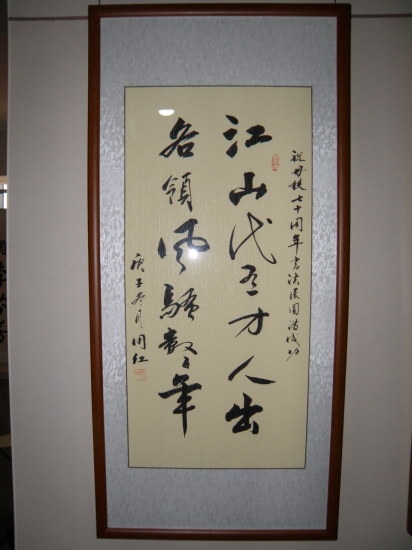 祝母校七十周年书法展圆满成功
江山代有才人出
各领风骚数百年
庚子冬月周红